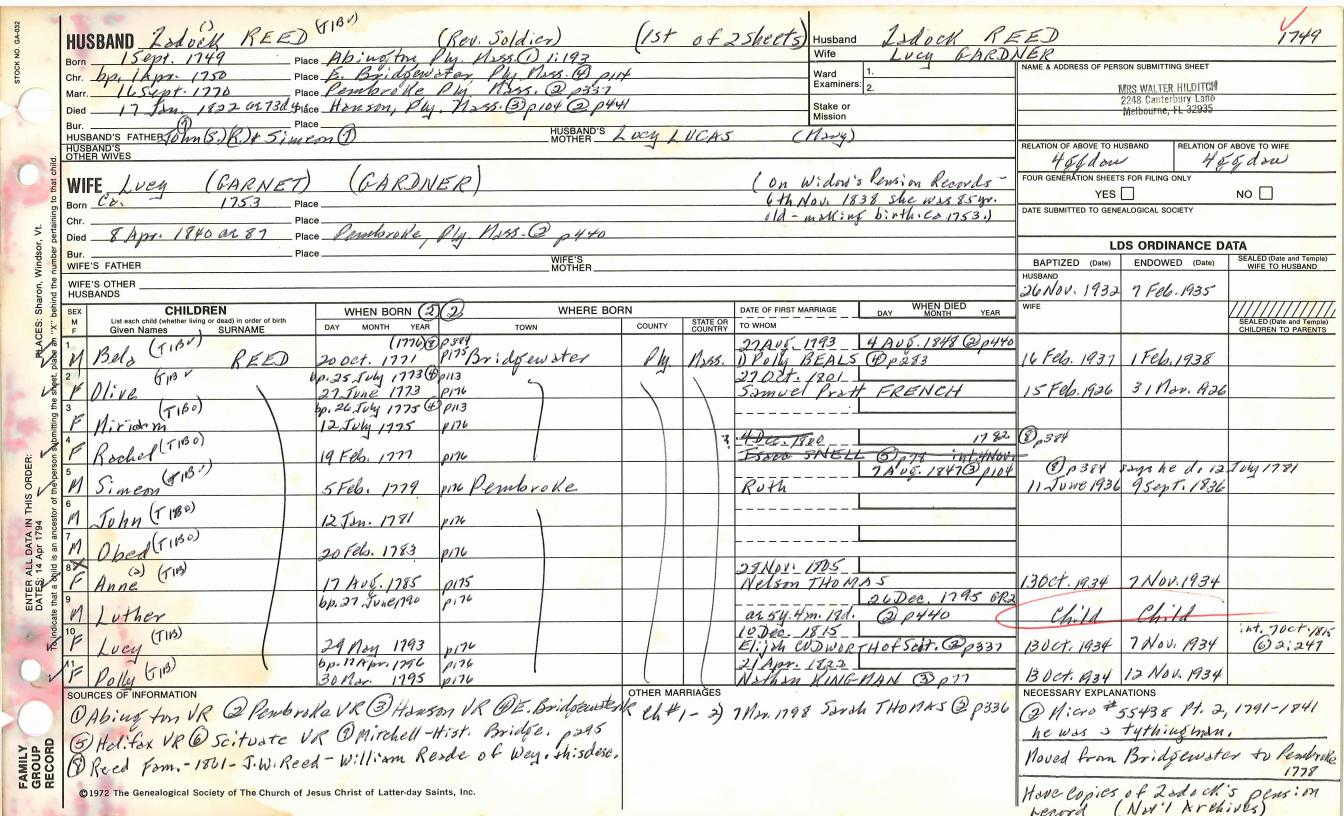 STOCK NO. GA-032
HUSBAND Zadock REED (TIBV) (Rev. Soldier) (1st of 2 sheets)
Born 1 Sept. 1749 Place Abington Ply. Mass. ① 1:193
Chr. bp. 1 Apr. 1750 Place E. Bridgewater, Ply. Mass. ④ p114
Marr. 16 Sept. 1770 Place Pembroke Ply. Mass. ② p337
Died 17 Jan. 1822 ae 73d. Place Hanson, Ply. Mass. ③ p104 ② p441
Bur. Place
HUSBAND'S FATHER John (B.)(R.) & Simeon ⑦ HUSBAND'S MOTHER Lucy LUCAS (Mary)
HUSBAND'S OTHER WIVES
Husband Zadock REED 1749
Wife Lucy GARDNER
Ward Examiners: 1.
2.
Stake or Mission
NAME & ADDRESS OF PERSON SUBMITTING SHEET
MRS WALTER HILDITCH
2248 Canterbury Lane
Melbourne, FL 32935
RELATION OF ABOVE TO HUSBAND RELATION OF ABOVE TO WIFE
4ggdau 4ggdau
FOUR GENERATION SHEETS FOR FILING ONLY
YES NO
DATE SUBMITTED TO GENEALOGICAL SOCIETY
WIFE Lucy (GARNET) (GARDNER) (On Widow's Pension Records -
Born Ca. 1753 Place 6th Nov. 1838 she was 85 yr.
Chr. Place old - making birth. Ca 1753.)
Died 8 Apr. 1840 ae 87 Place Pembroke, Ply. Mass. ② p440
Bur. Place
WIFE'S FATHER WIFE'S MOTHER
WIFE'S OTHER HUSBANDS
LDS ORDINANCE DATA
BAPTIZED (Date) ENDOWED (Date) SEALED (Date and Temple) WIFE TO HUSBAND
HUSBAND
26 Nov. 1932 7 Feb. 1935
WIFE
SEALED (Date and Temple) CHILDREN TO PARENTS
SEX M F CHILDREN WHEN BORN ② ② WHERE BORN DATE OF FIRST MARRIAGE WHEN DIED
List each child (whether living or dead) in order of birth
Given Names SURNAME DAY MONTH YEAR TOWN COUNTY STATE OR COUNTRY TO WHOM DAY MONTH YEAR
1 (1770) ⑧ p384 27 Aug. 1793 4 Aug. 1848 ② p440
M Bela (TIBV) REED 20 Oct. 1771 p175 Bridgewater Ply. Mass. 1) Polly BEALS ④ p283 16 Feb. 1937 1 Feb. 1938
2 bp. 25 July 1773 ④ p113 27 Oct. 1801
F Olive (TIBV) 27 June 1773 p176 Samuel Pratt FRENCH 15 Feb. 1926 31 Mar. 1926
3 bp. 26 July 1775 ④ p113
F Miriam (TIBO) 12 July 1775 p176
4 ? 4 Dec. 1800 1782 ⑧ p384
F Rachel (TIBO) 19 Feb. 1777 p176 Isaac SNELL ⑤ p78 int. 4 Nov.
5 7 Aug. 1847 ③ p104 ⑧ p384 says he d. 12 July 1781
M Simeon (TIBV) 5 Feb. 1779 p176 Pembroke Ruth 11 June 1936 9 Sept. 1936
6
M John (TIBO) 12 Jan. 1781 p176
7
M Obed (TIBO) 20 Feb. 1783 p176
8 X 28 Nov. 1805
F Anne (a) (TIB) 17 Aug. 1785 p175 Nelson THOMAS 13 Oct. 1934 7 Nov. 1934
9 bp. 27 June 1790 p176 26 Dec. 1795 GR2
M Luther ae 5y. 4m. 18d. ② p440 Child Child
10 10 Dec. 1815 int. 7 Oct. 1815
F Lucy (TIB) 29 May 1793 p176 Elijah CUDWORTH of Scit. ② p337 13 Oct. 1934 7 Nov. 1934 ⑥ 2:247
11 bp. 17 Apr. 1796 21 Apr. 1822
F Polly (TIB) 30 Mar. 1795 p176 Nathan KINGMAN ③ p77 13 Oct. 1934 12 Nov. 1934
SOURCES OF INFORMATION
① Abington VR ② Pembroke VR ③ Hanson VR ④ E. Bridgewater VR
⑤ Halifax VR ⑥ Scituate VR ⑦ Mitchell-Hist. Bridge. p295
⑧ Reed Fam. - 1861 - J.W. Reed - William Reade of Wey. & his desc.
OTHER MARRIAGES
Ch #1 - 2) 7 Mar. 1798 Sarah THOMAS ② p336
NECESSARY EXPLANATIONS
② Micro #55438 Pt. 2, 1791-1841
he was a tythingman.
Moved from Bridgewater to Pembroke
1778
Have copies of Zadock's pension
record (Nat'l Archives)
©1972 The Genealogical Society of The Church of Jesus Christ of Latter-day Saints, Inc.
FAMILY GROUP RECORD
ENTER ALL DATA IN THIS ORDER:
DATES: 14 Apr 1794
PLACES: Sharon, Windsor, Vt.
To indicate that a child is an ancestor of the person submitting the sheet, place an "X" behind the number pertaining to that child.